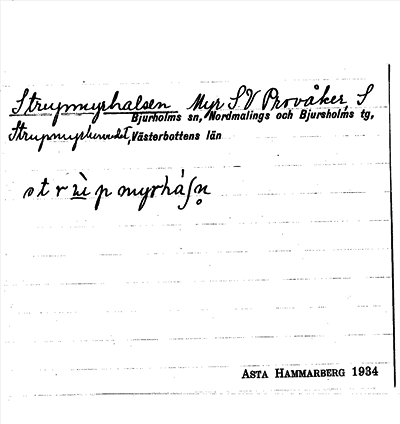 Strypmyrhalsen Myr SV Provåker, S
Bjurholms sn, Nordmalings och Bjursholms tg,
Strypmyrhuvudet, Västerbottens län
Asta Hammarberg 1934